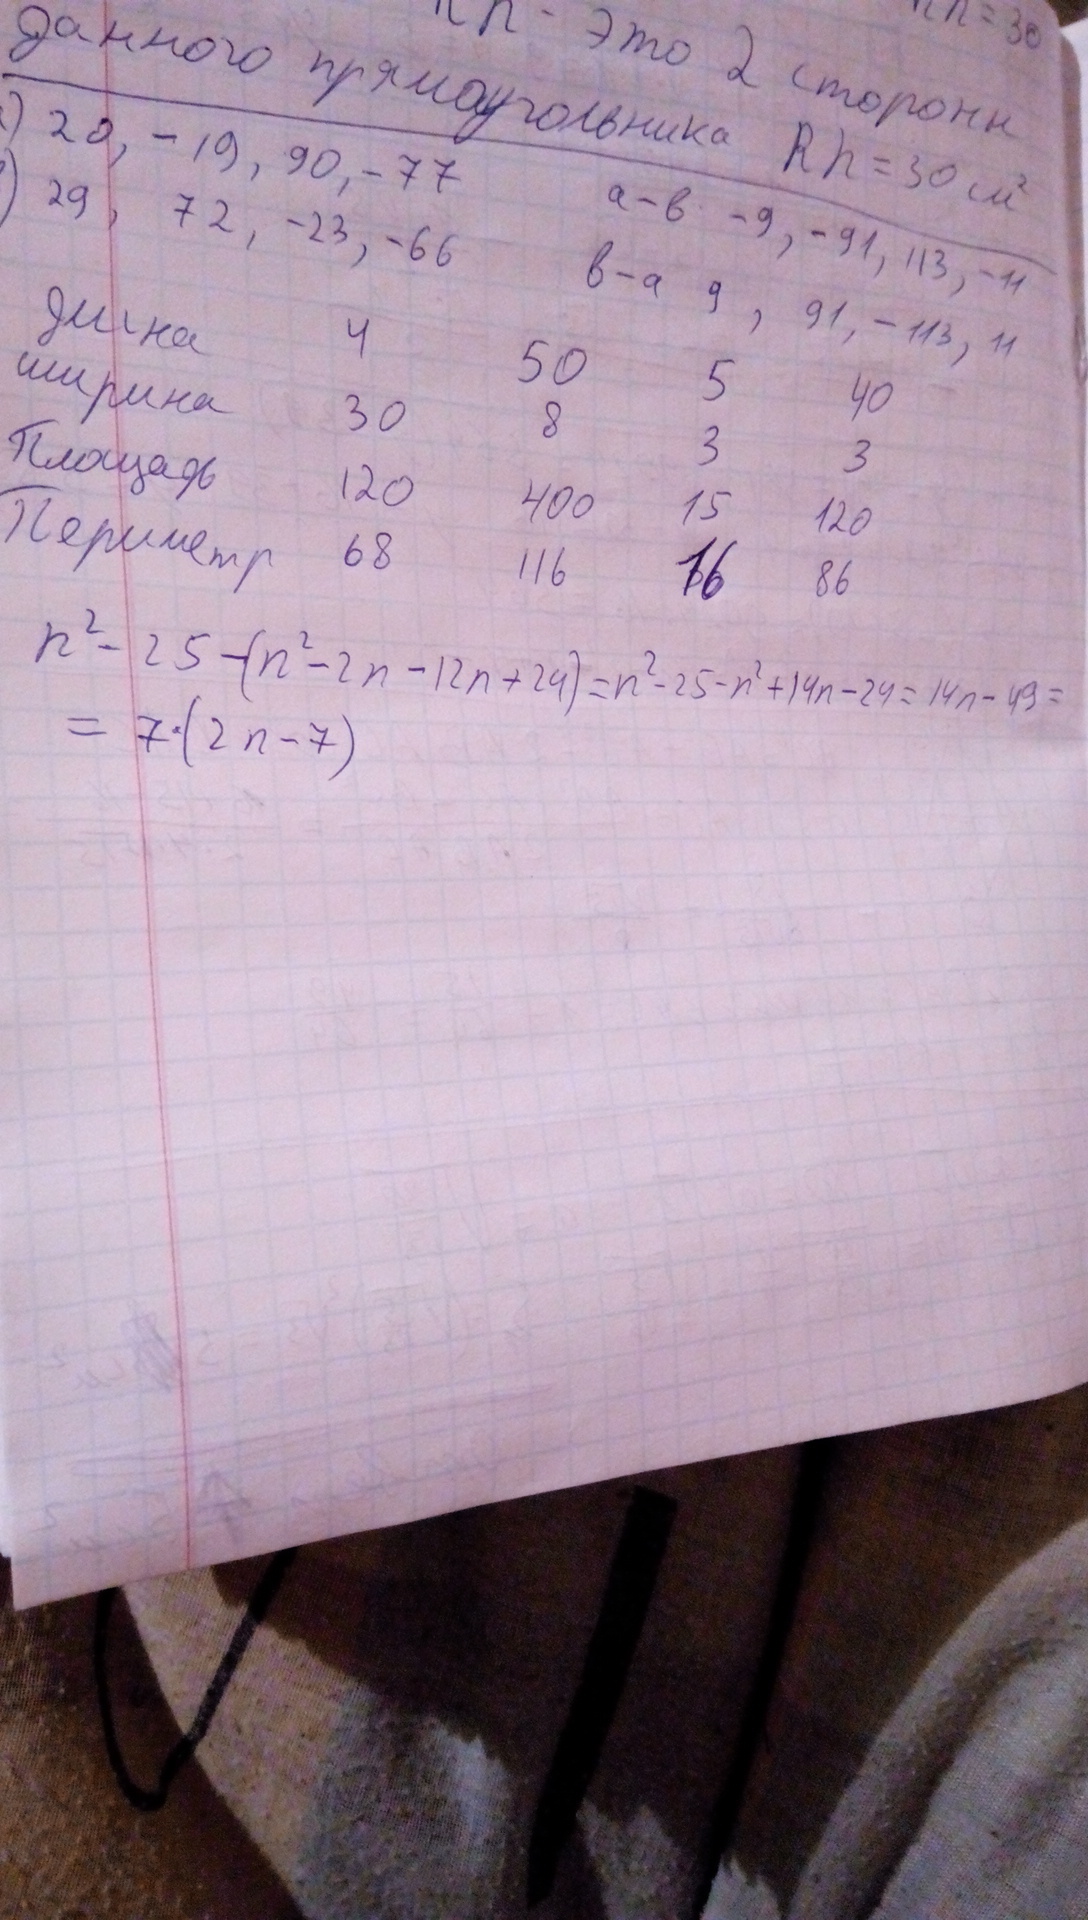 Rh - это 2 стороны
Rh = 30
данного прямоугольника Rh = 30 см²
) 20, -19, 90, -77
а-в -9, -91, 113, -11
) 29, 72, -23, -66
в-а 9, 91, -113, 11
длина 4 50 5 40
ширина 30 8 3 3
Площадь 120 400 15 120
Периметр 68 116 16 86
n² - 25 - (n² - 2n - 12n + 24) = n² - 25 - n² + 14n - 24 = 14n - 49 =
= 7·(2n - 7)